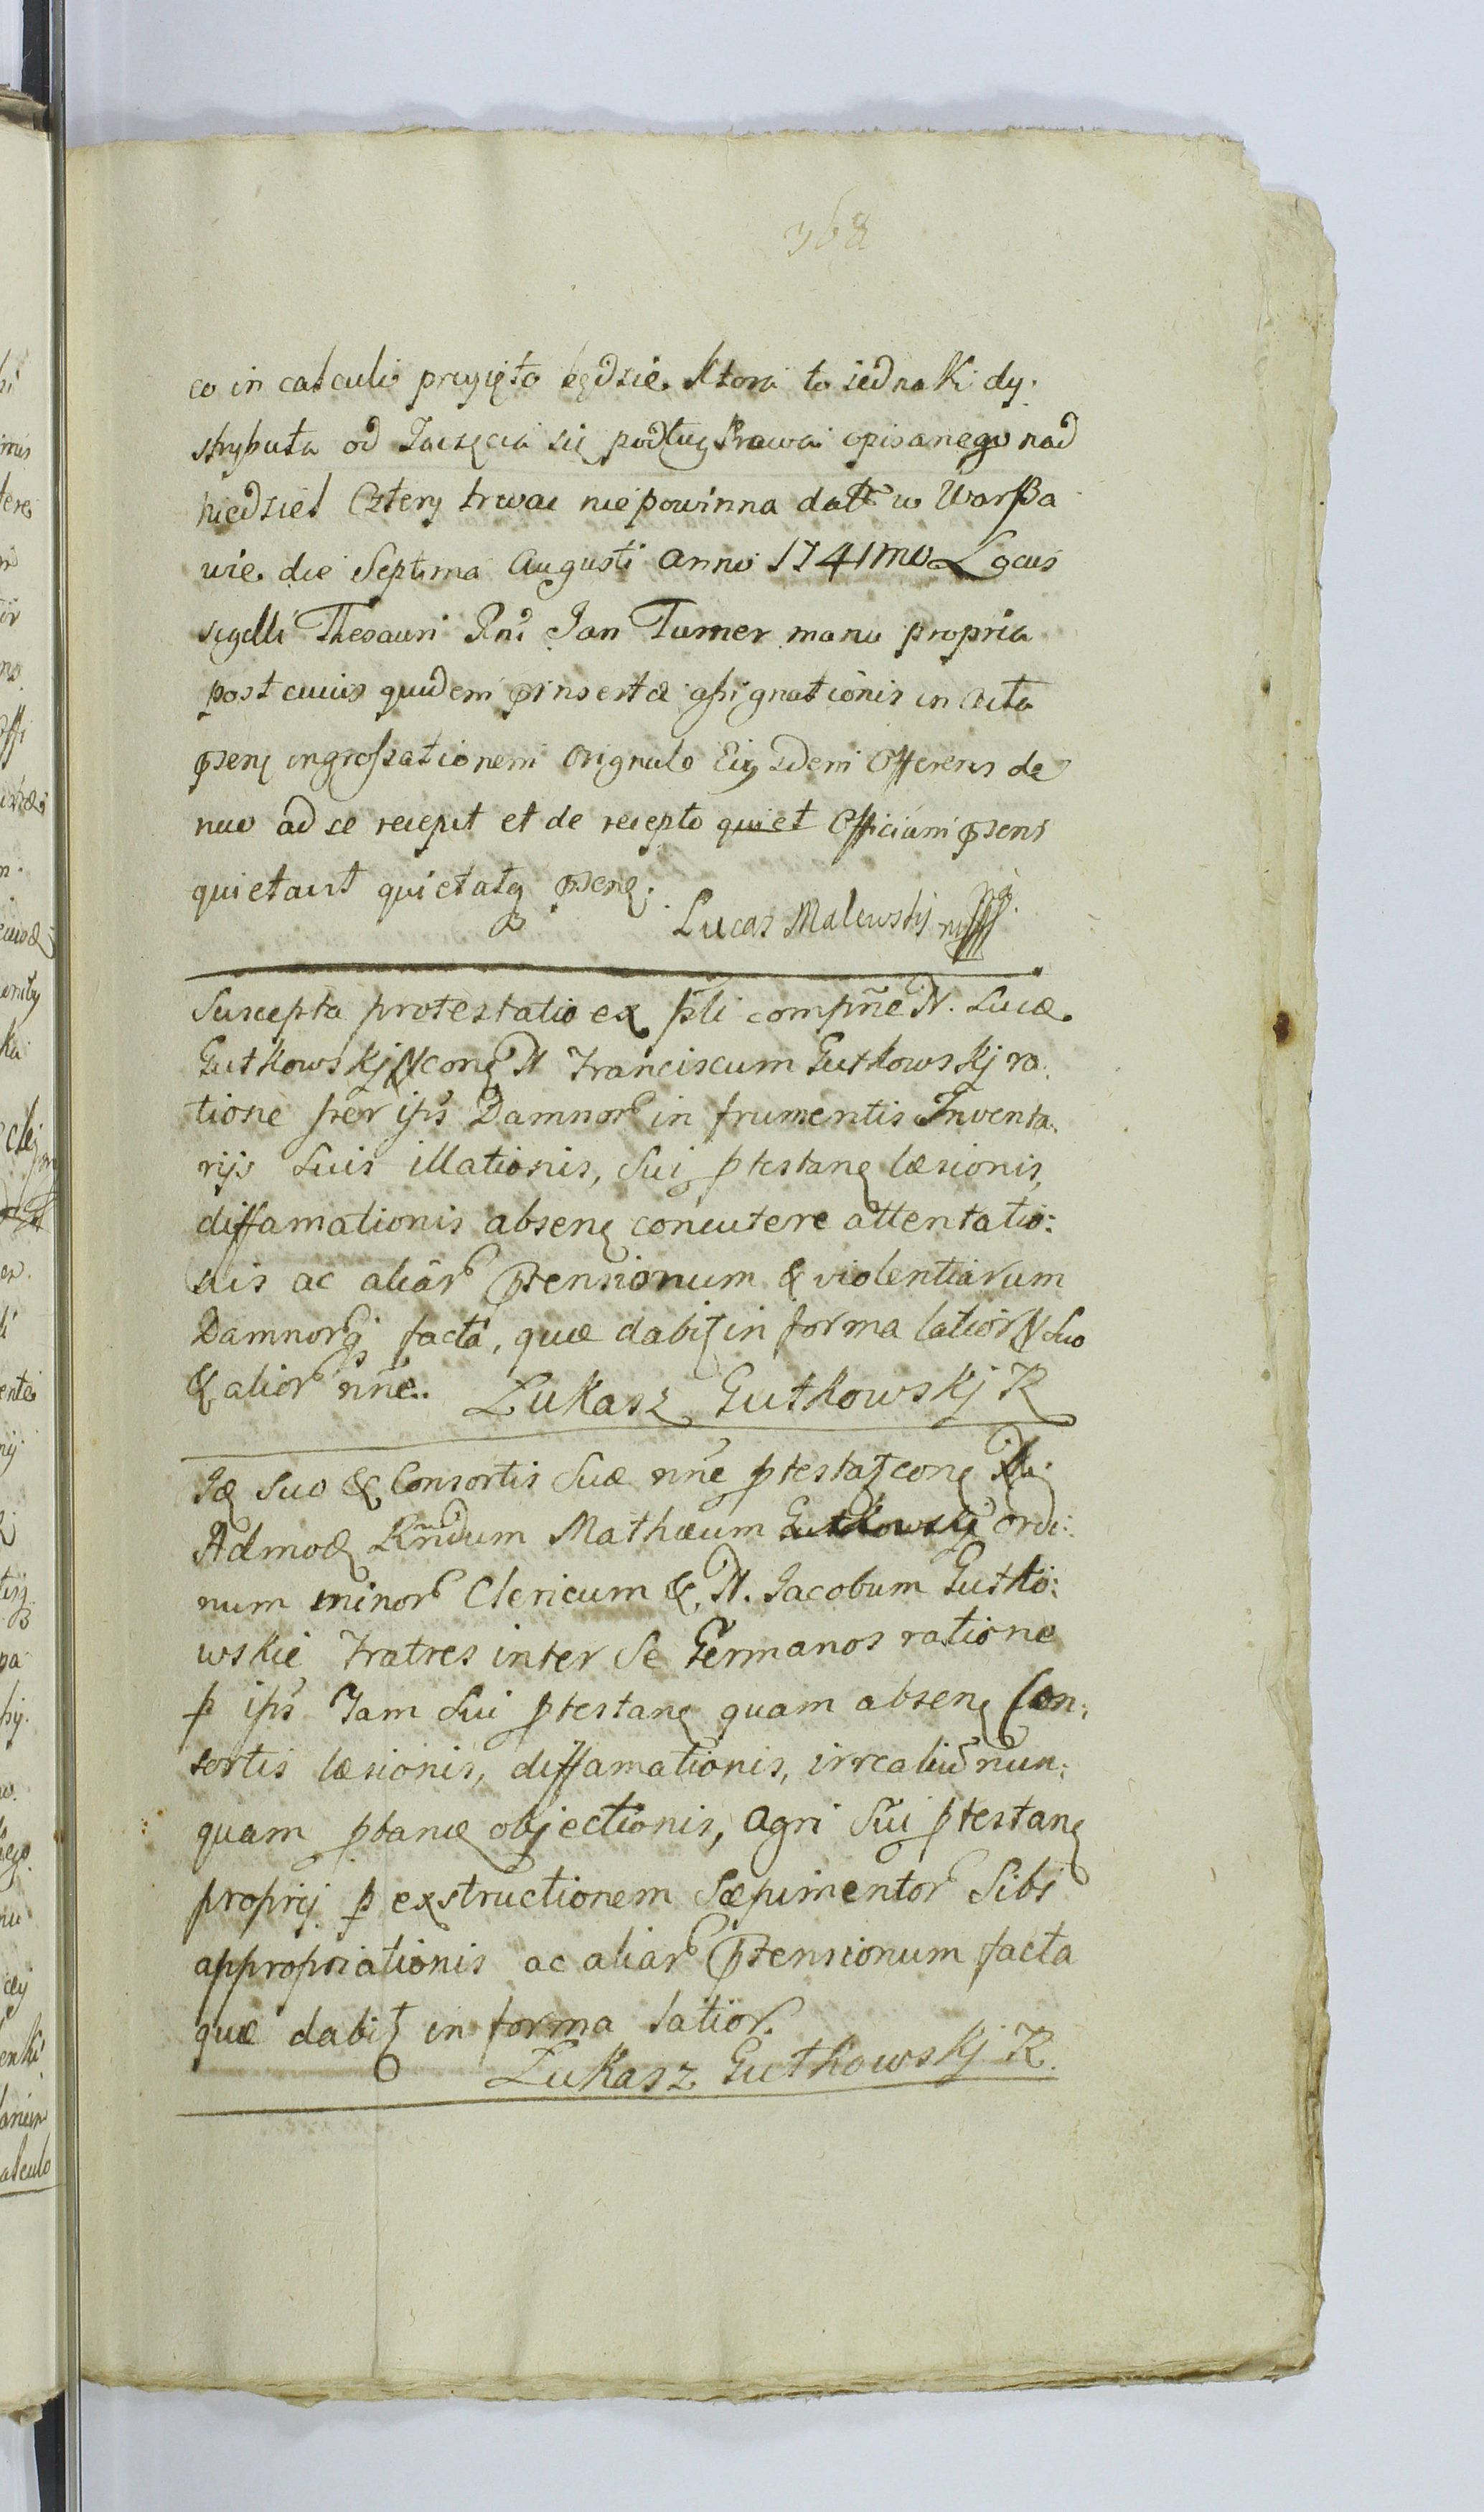 368
co in calculo przyięto będzie. Ktora to iednaki dy.
strybuta od Zaczęcia się podług Prawa opisanego nad
niedziel Cztery trwac niepowinna datt w Warßa
wie die Septima Augusti Anno 1741mo Locus
sigilli Thesauri Rni Jan Turner manu propria
post cuius quidem pinsertæ assignationis in Acta
psenę ingrossationem Originale Eiusdem Offerens de
nuo ad se recepit et de recepto quiet Officium psens
quietavit quietatq psenę.
Lucas Malewskij
Suscepta protestatio ex pli compñe N. Lucæ
Gutkowskj N conę N Franciscum Gutkowskj ra.
tione per ips Damnor in frumentis Inventa.
rijs Suis illationis, Sui ptestanę læsionis,
diffamationis absenę concutere attentatio:
nis ac aliar ptensionum & violentiarum
Damnorq facta, quæ dabit in forma latior N Suo
& alior nñe. Łukasz Gutkowskj R
Jdę Suo & Consortis Suæ nñe ptestat conę
Admodę Rñdum Mathæum Gutkowskj ordi:
num minor Clericum & N. Jacobum Gutko:
wskie Fratres inter Se Germanos ratione
p ips Tam Sui ptestanę quam absenę Con:
sortis læsionis, diffamationis, irrealiu nun:
quam pbanę objectionis, Agri Sui ptestanę
proprij p exstructionem Sæpimentor Sibi
appropriationis ac aliar ptensionum facta
quæ dabit in forma latior.
Łukasz Gutkowskj R.